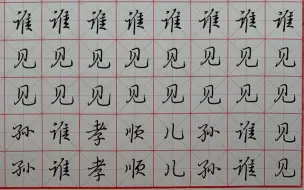 谁谁谁谁谁谁谁谁
见见见见见见见见
见见见见见见见见
孙谁孝顺儿孙谁见
孙谁孝顺儿孙谁见